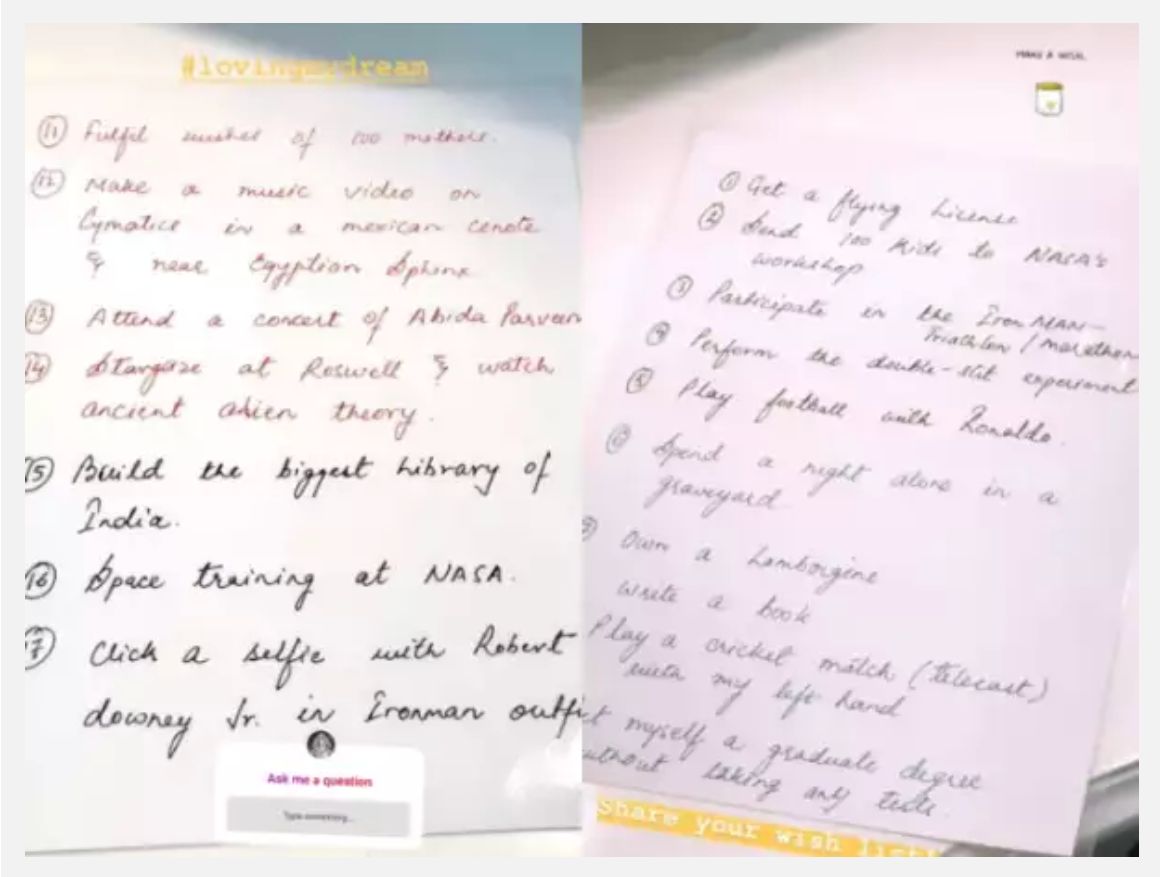 #lovingmydream
11 Fulfil wishes of 100 mothers.
12 Make a music video on
Cymatics in a mexican cenote
& near Egyptian Sphinx
13 Attend a concert of Abida Parveen
14 Stargaze at Roswell & watch
ancient alien theory.
15 Build the biggest Library of
India.
16 Space training at NASA.
17 Click a selfie with Robert
downey Jr. in Ironman outfit
Ask me a question
Type something...
MAKE A WISH..
1 Get a flying License
2 Send 100 kids to NASA's
workshop
3 Participate in the Iron MAN-
Triathlon / marathon
4 Perform the double-slit experiment
5 Play football with Ronaldo.
6 Spend a night alone in a
graveyard
Own a Lamborgine
write a book
Play a cricket match (telecast)
with my left hand
myself a graduate degree
without taking any tests.
Share your wish list!